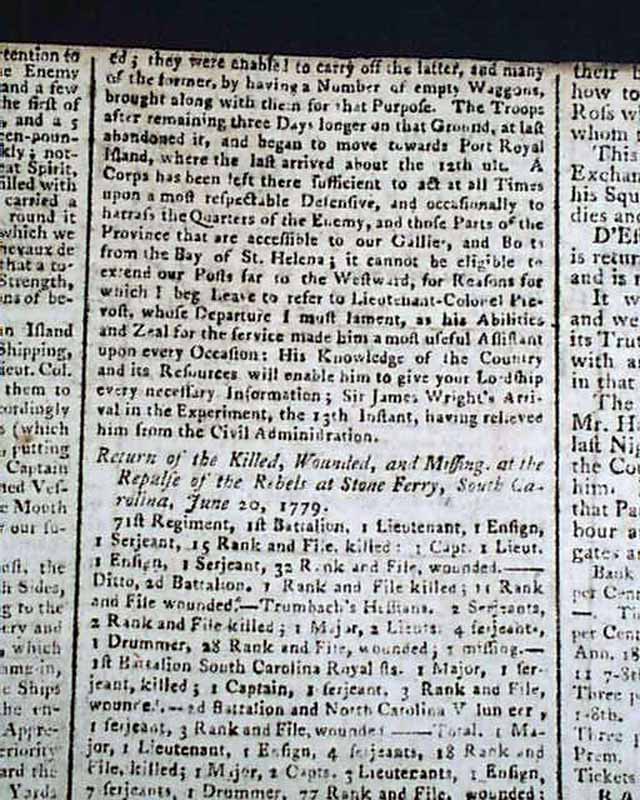 rtention to
e Enemy
and a few
the first of
, and a 5
een-poun-
kly; not-
eat Spirit,
filled with
carried a
round it
which we
hevaux de
that a to-
Strength,
ns of be-
an Island
Shipping,
ieut. Col.
them to
cordingly
s (which
, putting
Captain
ned Ves-
e Mouth
our su-
ost, the
h Sides,
g to the
ery and
, which
ame-in,
e Ships
the en-
Appre-
eriority
ard the
Yards
ed; they were enabled to carry off the latter, and many
of the former, by having a Number of empty Waggons,
brought along with them for that Purpose. The Troops
after remaining three Days longer on that Ground, at last
abandoned it, and began to move towards Port Royal
Island, where the last arrived about the 12th ult. A
Corps has been left there sufficient to act at all Times
upon a most respectable Defensive, and occasionally to
harrass the Quarters of the Enemy, and those Parts of the
Province that are accessible to our Gallies, and Bo ts
from the Bay of St. Helena; it cannot be eligible to
extend our Posts far to the Westward, for Reasons for
which I beg Leave to refer to Lieutenant-Colonel Pre-
vost, whose Departure I must lament, as his Abilities
and Zeal for the service made him a most useful Assistant
upon every Occasion: His Knowledge of the Country
and its Resources will enable him to give your Lordship
every necessary Information; Sir James Wright's Arri-
val in the Experiment, the 13th Instant, having relieved
him from the Civil Administration.
Return of the Killed, Wounded, and Missing, at the
Repulse of the Rebels at Stone Ferry, South Ca-
rolina, June 20, 1779.
71st Regiment, 1st Battalion. 1 Lieutenant, 1 Ensign,
1 Serjeant, 15 Rank and File, killed: 1 Capt. 1 Lieut.
1 Ensign, 1 Serjeant, 32 Rank and File, wounded.——
Ditto, 2d Battalion. 7 Rank and File killed; 11 Rank
and File wounded.—Trumbach's Hessians. 2 Serjeants,
2 Rank and File killed; 1 Major, 2 Lieuts. 4 serjeants,
1 Drummer, 28 Rank and File, wounded; 1 missing.—
1st Battalion South Carolina Royal sts. 1 Major, 1 ser-
jeant, killed; 1 Captain, 1 serjeant. 3 Rank and File,
wounded.—2d Battalion and North Carolina V lun eer,
1 serjeant, 3 Rank and File, wounded ——Total. 1 Ma-
jor, 1 Lieutenant, 1 Ensign, 4 serjeants, 18 Rank and
File, killed; 1 Major, 2 Capts. 3 Lieutenants, 1 Ensign,
7 serjeants, 1 Drummer, 77 Rank and File, wounded;
their b
how to
Ross w
whom
This
Exchan
his Squ
dies an
D'Es
is return
and is
It w
and we
its Trut
with a
in that
The
Mr. Ha
last Nig
the Co
him.
that Pa
bour a
gates a
Bank
per Cen
—. T
per Cent
Ann. 18
11 7-8th
Three p
1-8th.
Three p
Prem.
Tickets